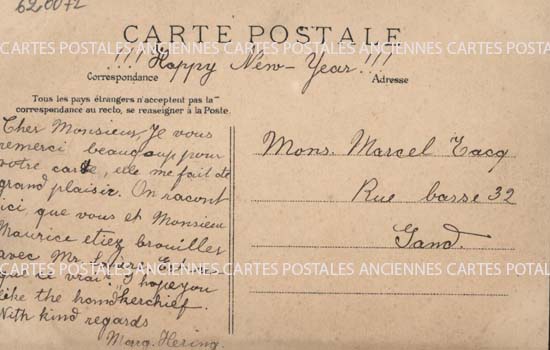 620072
CARTE POSTALE
CARTES POSTALES ANCIENNES CARTES POSTALES ANCIENNES CARTES POSTALES
!!! Happy New-Year !!!
Correspondance
Adresse
Tous les pays étrangers n'acceptent pas la
correspondance au recto, se renseigner à la Poste.
Cher Monsieur Je vous
remerci beaucoup pour
votre carte, elle me fait de
grand plaisir. On racont
ici que vous et Monsieur
Maurice etiez brouiller
avec Mr.
que ce vrai? I hope you
like the homdkerchief.
With kind regards
Marg. Hering.
Mons. Marcel Tacq
Rue basse 32
Gand.
CARTES POSTALES ANCIENNES CARTES POSTALES ANCIENNES CARTES POSTALES